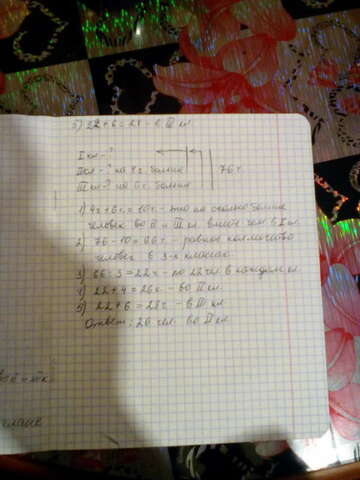 5) 22+6=28 - в III кл.
I кл - ?
II кл - ? на 4 ч. больше
III кл - ? на 6 ч. больше
76 ч.
1) 4ч + 6ч = 10ч. - это на сколько больше
человек во II и III кл. вместе чем в I кл.
2) 76 - 10 = 66 ч. - равное количество
человек в 3-х классах
3) 66 : 3 = 22 ч. - по 22 чел. в каждом кл
4) 22 + 4 = 26 ч. - во II кл.
5) 22 + 6 = 28 ч. - в III кл
Ответ: 26 чел. во II кл.